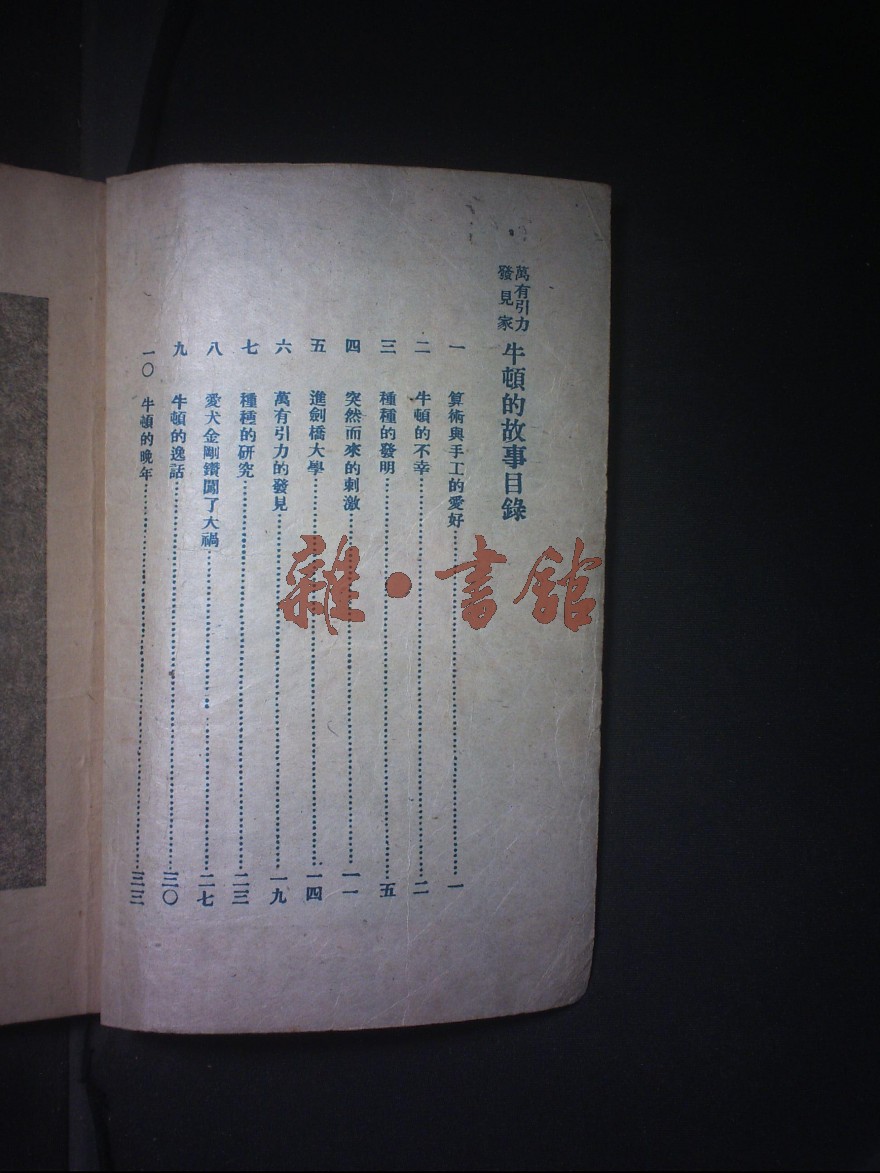 萬有引力
發見家
牛頓的故事目錄
一 算術與手工的愛好 一
二 牛頓的不幸 二
三 種種的發明 五
四 突然而來的刺激 一一
五 進劍橋大學 一四
六 萬有引力的發見 一九
七 種種的研究 二三
八 愛犬金剛鑽闖了大禍 二七
九 牛頓的逸話 三〇
一〇 牛頓的晚年 三三
雜·書館